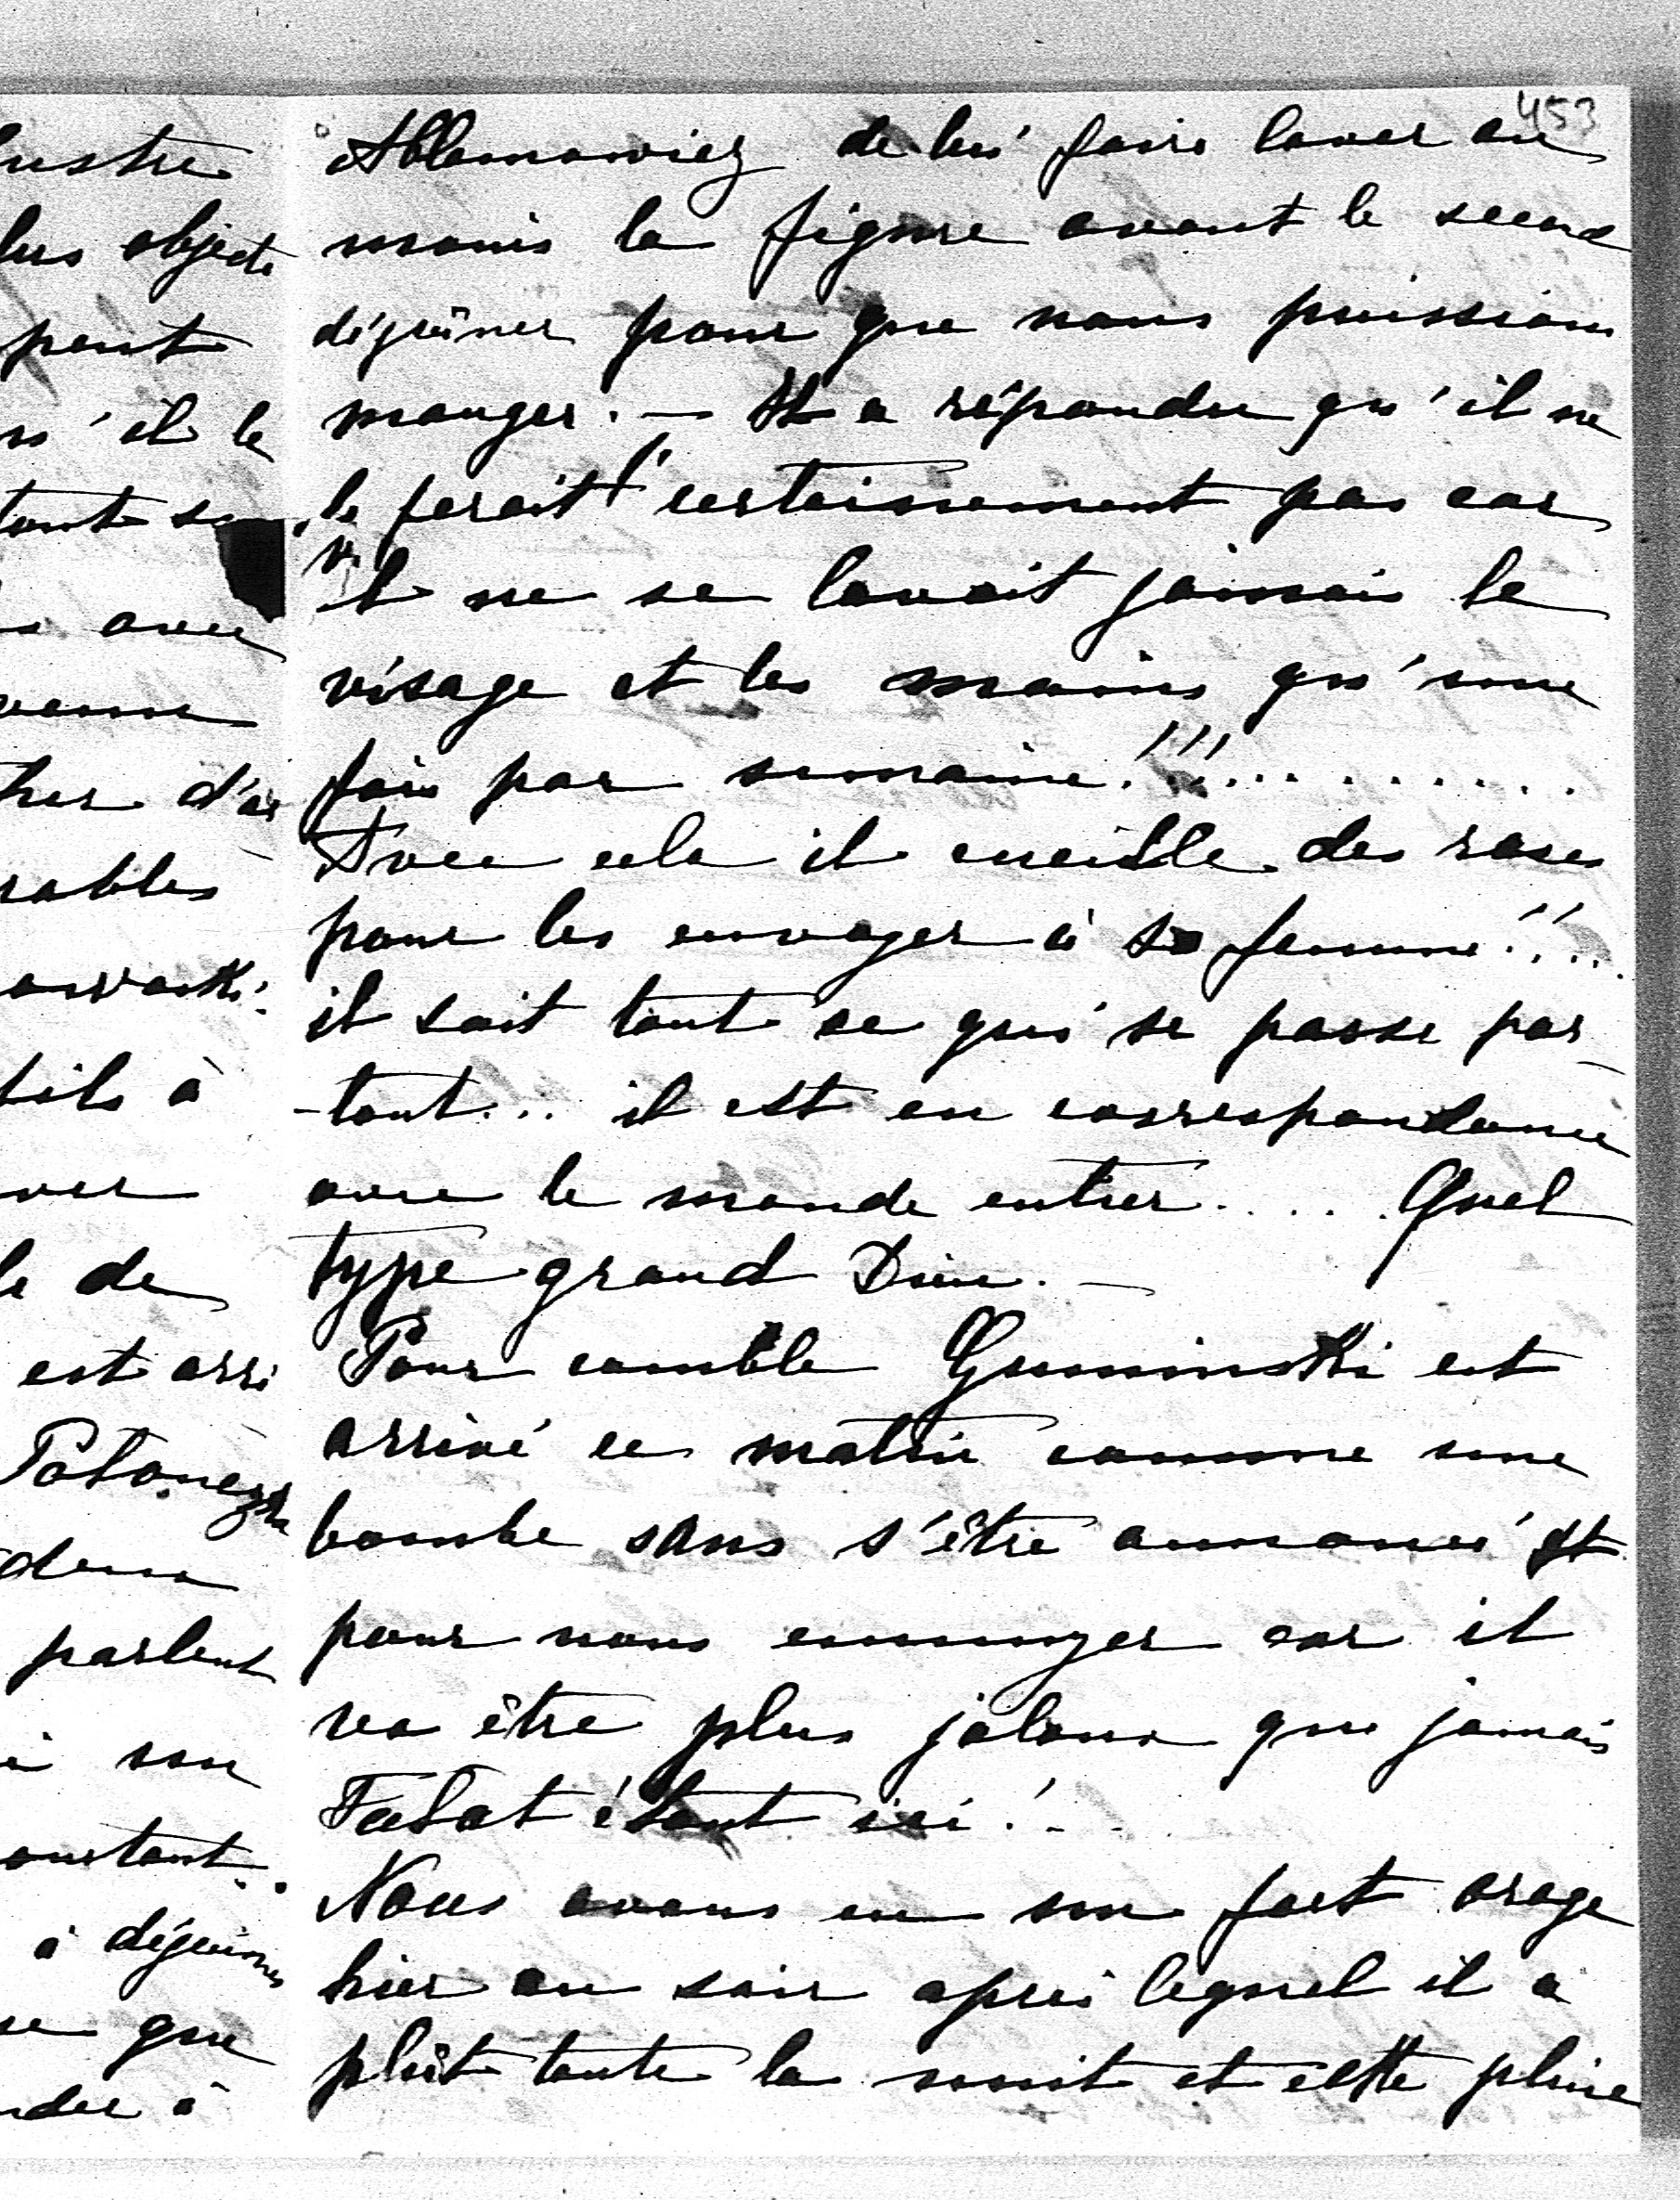 453
Ablamowicz de lui faire laver au
moins la figure avant le second
déjeûner pour que nous puissions
manger. — Il a répondu qu'il ne
le ferait certainement pas car
il ne se lavait jamais le
visage et les mains qu'une
fois par semaine!!!.........
Avec cela il cueille des roses
pour les envoyer à sa femme!!...
il sait tout ce qui se passe par
-tout... il est en correspondance
avec le monde entier..... Quel
type grand Dieu. —
Pour comble Guminski est
arrivé ce matin comme une
bombe sans s'être annoncé et
pour nous ennuyer car il
va être plus jaloux que jamais
Falat étant ici!..
Nous avons eu un fort orage
hier au soir après lequel il a
plût toute la nuit et cette pluie
lustre
objets
peut
il le
tout
avec
d'ar
rables
à
ver
de
est arri
parlent
à son
à déjeuner
que
à